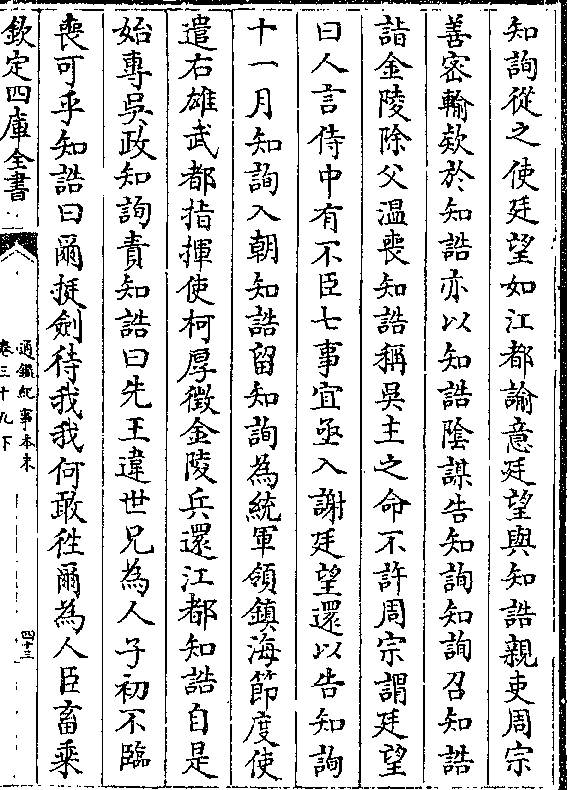 知詢從之使廷望如江都諭意廷望與知誥親吏周宗
善密輸欵於知誥亦以知誥陰謀告知詢知詢召知誥
詣金陵除父溫喪知誥稱吳主之命不許周宗謂廷望
曰人言侍中有不臣七事宜亟入謝廷望還以告知詢
十一月知詢入朝知誥留知詢為統軍領鎮海節度使
遣右雄武都指揮使柯厚徵金陵兵還江都知誥自是
始專吳政知詢責知誥曰先王違世兄為人子初不臨
喪可乎知誥曰爾挺劍待我我何敢徃爾為人臣畜乘
欽定四庫全書
通鑑紀事本末
卷三十九下
四十三